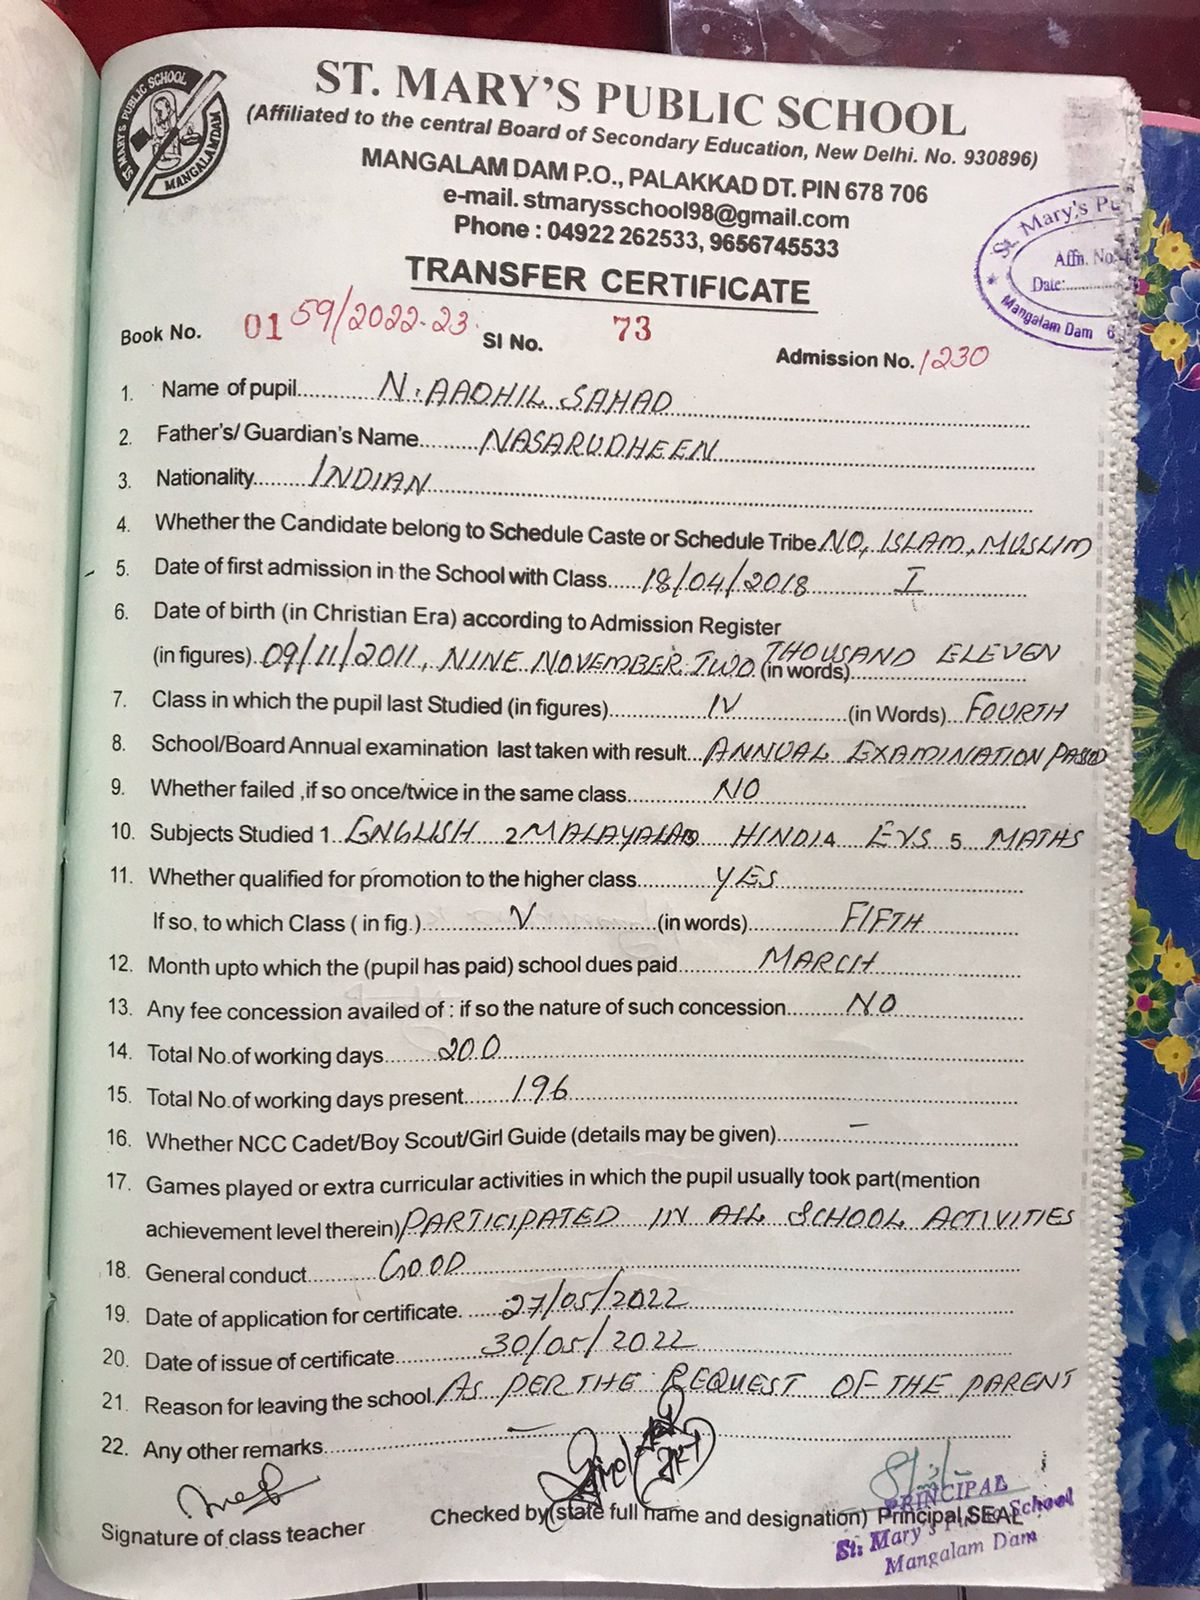 ST. MARY'S PUBLIC SCHOOL
MANGALAMDAM
ST. MARY'S PUBLIC SCHOOL
(Affiliated to the central Board of Secondary Education, New Delhi. No. 930896)
MANGALAM DAM P.O., PALAKKAD DT. PIN 678 706
e-mail. stmarysschool98@gmail.com
Phone : 04922 262533, 9656745533
St. Mary's Pu
Affn. No
Date:
Mangalam Dam 6
TRANSFER CERTIFICATE
Book No. 01 59/2022-23 SI No. 73 Admission No. 1230
1. Name of pupil N. AADHIL SAHAD
2. Father's/ Guardian's Name NASARUDHEEN
3. Nationality INDIAN
4. Whether the Candidate belong to Schedule Caste or Schedule Tribe NO, ISLAM, MUSLIM
5. Date of first admission in the School with Class 18/04/2018 I
6. Date of birth (in Christian Era) according to Admission Register
(in figures) 09/11/2011, NINE NOVEMBER TWO THOUSAND ELEVEN (in words)
7. Class in which the pupil last Studied (in figures) IV (in Words) FOURTH
8. School/Board Annual examination last taken with result ANNUAL EXAMINATION PASSED
9. Whether failed ,if so once/twice in the same class NO
10. Subjects Studied 1 ENGLISH 2 MALAYALAM 3 HINDI 4 EVS 5 MATHS
11. Whether qualified for promotion to the higher class YES
If so, to which Class ( in fig.) V (in words) FIFTH
12. Month upto which the (pupil has paid) school dues paid MARCH
13. Any fee concession availed of : if so the nature of such concession NO
14. Total No.of working days 200
15. Total No.of working days present 196
16. Whether NCC Cadet/Boy Scout/Girl Guide (details may be given) –
17. Games played or extra curricular activities in which the pupil usually took part(mention
achievement level therein) PARTICIPATED IN ALL SCHOOL ACTIVITIES
18. General conduct GOOD
19. Date of application for certificate. 27/05/2022
20. Date of issue of certificate 30/05/2022
21. Reason for leaving the school. AS PER THE REQUEST OF THE PARENT
22. Any other remarks –
Signature of class teacher Checked by(state full name and designation) Principal SEAL
PRINCIPAL
St: Mary's Public School
Mangalam Dam